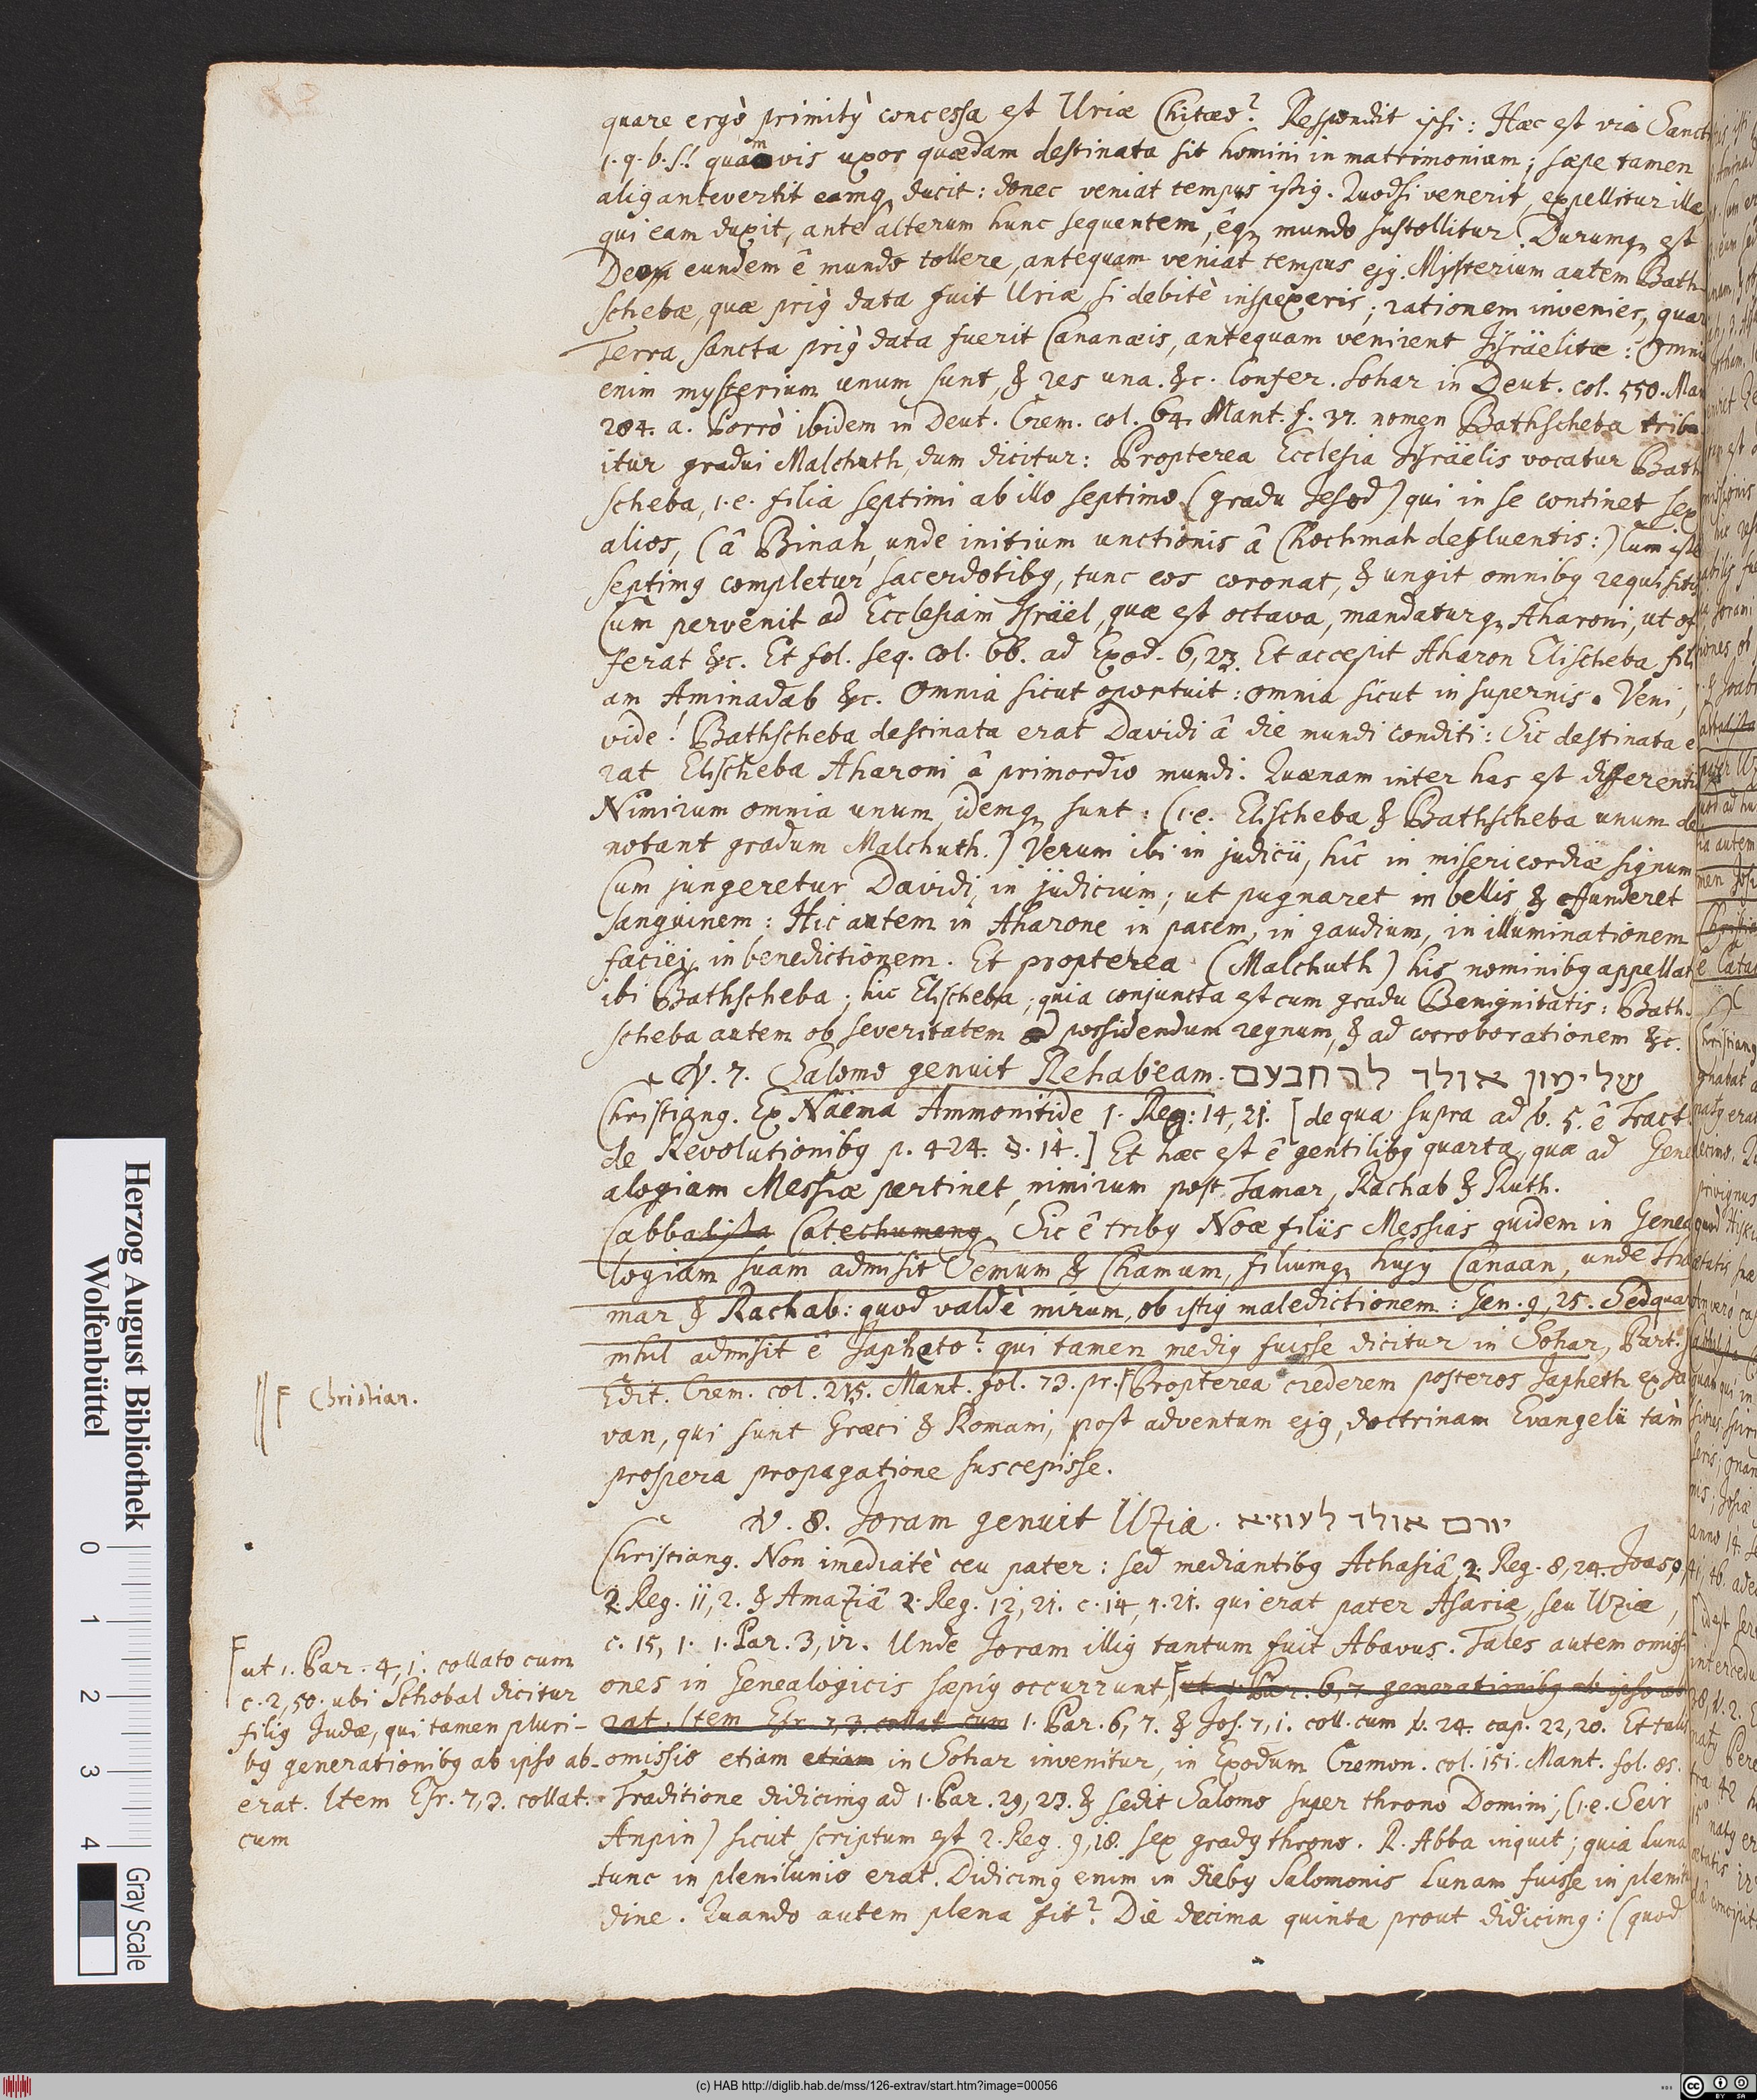 quare ergò primitꝰ concessa est Uriæ Chitæo? Respondit ipsi: Hæc est via Sancti
1. q. b. s! quamvis uxor quædam destinata sit homini in matrimonium; sæpe tamen
aliꝗ antevertit eamꝗ ducit: donec veniat tempus istiꝰ. Quodsi venerit, expellitur ille
qui eam duxit, ante alterum hunc sequentem, êꝗ mundo sustollitur. Durumꝗ est
Deo eundem ê mundo tollere, antequam veniat tempus ejꝰ. Mysterium autem Bath-
schebæ, quæ priꝰ data fuit Uriæ, si debitè inspexeris; rationem invenies, quare
Terra sancta priꝰ data fuerit Cananæis, antequam venirent Jisräelitæ: Omnia
enim mysterium unum sunt, & res una. &c. Confer. Sohar in Deut. col. 550. Mant
204. a. Porrò ibidem in Deut. Crem. col. 64. Mant. f. 31. nomen Bathscheba tribu
itur gradui Malchuth, dum dicitur: Propterea Ecclesia Jisräelis vocatur Bath
scheba, i.e. filia septimi ab illo septimo (gradu Jesod) qui in se continet sex
alios, (â Binah, unde initium unctionis â Chochmah defluentis:) Cum iste
septimꝰ completur sacerdotibꝰ, tunc eos coronat, & ungit omnibꝰ requisitis
Cum pervenit ad Ecclesiam Jsräel, quæ est octava, mandaturꝗ Aharoni, ut of
ferat &c. Et fol. seq. col. 66. ad Exod. 6, 23. Et accepit Aharon Elischeba fili
am Aminadab &c. Omnia sicut oportuit: omnia sicut in supernis. Veni,
vide! Bathscheba destinata erat Davidi â die mundi conditi: Sic destinata e
rat Elischeba Aharoni â primordio mundi. Quænam inter has est differentia
Nimirum omnia unum, idemꝗ sunt: (i.e. Elischeba & Bathscheba unum de
notant gradum Malchuth.) Verum ibi in judicii, hîc in misericordiæ signum
Cum jungeretur Davidi, in judicium; ut pugnaret in bellis & effunderet
sanguinem: Hic autem in Aharone in pacem, in gaudium, in illuminationem
faciei, in benedictionem. Et propterea (Malchuth) his nominibꝰ appellat
ibi Bathscheba; hic Elischeba; quia conjuncta est cum gradu Benignitatis: Bath-
scheba autem ob severitatem ad possidendum regnum, & ad corroborationem &c.
V. 7. Salomo genuit Rehabeam. שלימון אולד לרחבעם
Christianꝰ. Ex Naëma Ammonitide 1. Reg: 14, 21. [de qua supra ad v. 5. ê Tract.
de Revolutionibꝰ p. 424. §. 14.] Et hæc est ê gentilibꝰ quarta, quæ ad Gene
alogiam Messiæ pertinet, nimirum post Tamar, Rachab & Ruth.
Cabbalista Catechumenꝰ. Sic ê tribꝰ Noæ filiis Messias quidem in Genea
logiam suam admisit Semum & Chamum, filiumꝗ hujꝰ Canaan, unde Tha
mar & Rachab: quod valdè mirum, ob istiꝰ maledictionem: Gen. 9, 25. Sed quare
nihil admisit ê Japheto? qui tamen mediꝰ fuisse dicitur in Sohar, Part.
Edit. Crem. col. 215. Mant. fol. 73. pr. Propterea crederem posteros Japheth ex Ja
van, qui sunt Græci & Romani, post adventum ejꝰ, doctrinam Evangelii tàm
prospera propagatione suscepisse.
Christian.
V. 8. Joram genuit Uzia. יורם אולד לעוזיא
Christianꝰ. Non imediatè ceu pater: sed mediantibꝰ Athasiâ 2. Reg. 8, 24. Joaso,
2. Reg. 11, 2. & Amaziâ 2. Reg. 12, 21. c. 14, 1. 21. qui erat pater Asariæ, seu Uziæ,
c. 15, 1. 1. Par. 3, 12. Unde Joram illiꝰ tantum fuit Abavus. Tales autem omissi
ones in Genealogicis sæpiꝰ occurrunt ut 1. Par. 6, 7. generationibꝰ ab ipso ab
erat. Item Esr. 7, 3. collat. cum 1. Par. 6, 7. & Jos. 7, 1. coll. cum v. 24. cap. 22, 20. Et talis
omissio etiam etiam in Sohar invenitur, in Exodum Cremon. col. 151. Mant. fol. 85.
Traditione didicimꝰ ad 1. Par. 29, 23. & sedit Salomo super throno Domini, (i.e. Seir
Anpin) sicut scriptum est 2. Reg. 9, 18. sex gradꝰ throno. R. Abba inquit; quia Luna
tunc in plenilunio erat. Didicimꝰ enim in diebꝰ Salomonis Lunam fuisse in plenitu
dine. Quando autem plena fit? Die decima quinta prout didicimꝰ: (quod
ut 1. Par. 4, 1. collato cum
c. 2, 50. ubi Schobal dicitur
filiꝰ Judæ, qui tamen pluri-
bꝰ generationibꝰ ab ipso ab-
erat. Item Esr. 7, 3. collat.
cum
Herzog August Bibliothek
Wolfenbüttel
0 1 2 3 4
Gray Scale
(c) HAB http://diglib.hab.de/mss/126-extrav/start.htm?image=00056
cc BY SA